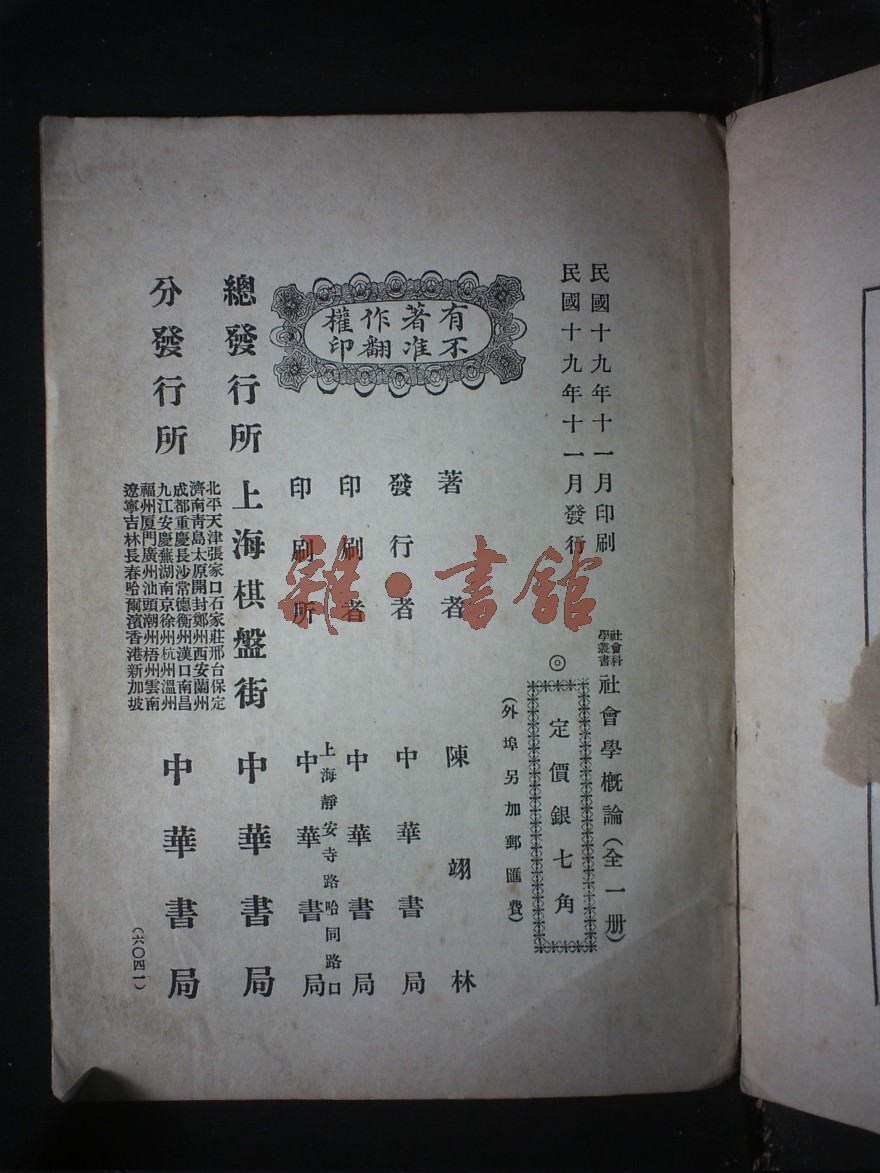 民國十九年十一月印刷
民國十九年十一月發行
社會科
學叢書
社會學概論（全一册）
◎
定價銀七角
（外埠另加郵匯費）
著者 陳翊林
發行者 中華書局
印刷者 中華書局
印刷所 上海靜安寺路哈同路口
中華書局
有著作權
不准翻印
總發行所 上海棋盤街 中華書局
分發行所
北平天津張家口石家莊邢台保定
濟南青島太原開封鄭州西安蘭州
成都重慶長沙常德衡州漢口南昌
九江安慶蕪湖南京徐州杭州溫州
福州厦門廣州汕頭潮州梧州雲南
遼寧吉林長春哈爾濱香港新加坡
中華書局
（六〇四一）
雜·書館